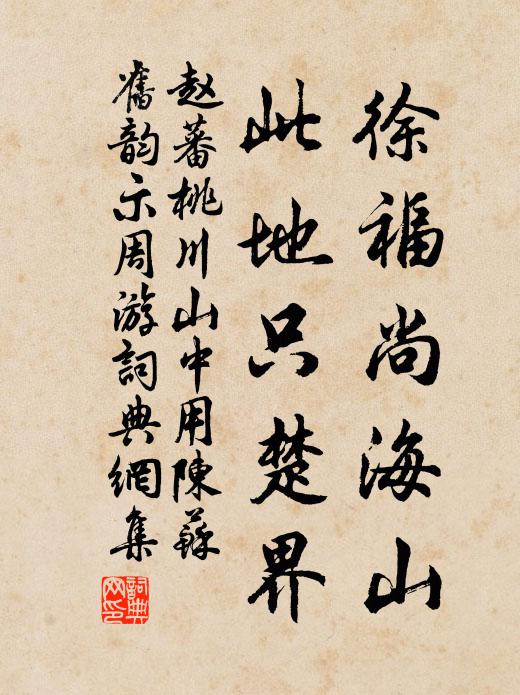 徐福尚海山
此地只楚界
赵蕃桃川山中用陳蘇
舊韵示周游詞典網集
詞典网印